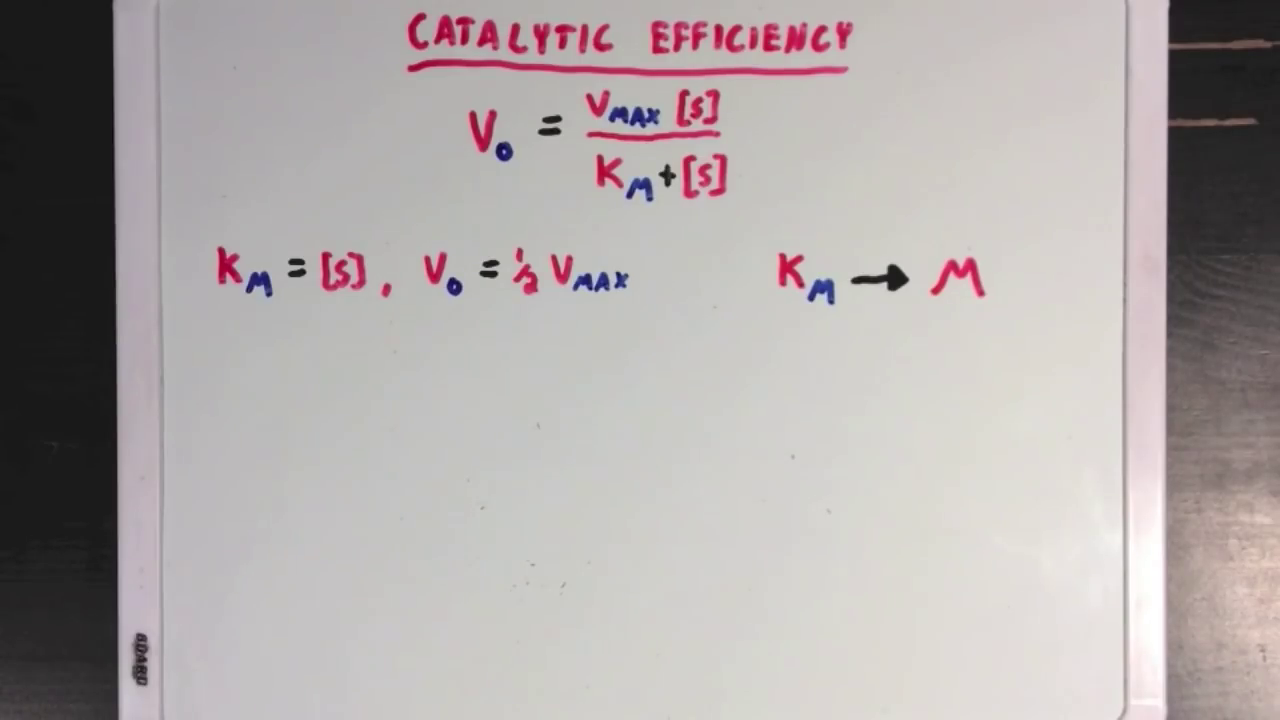 CATALYTIC EFFICIENCY
V₀ = VMAX [S] / KM + [S]
KM = [S], V₀ = ½ VMAX
KM → M
BOARD